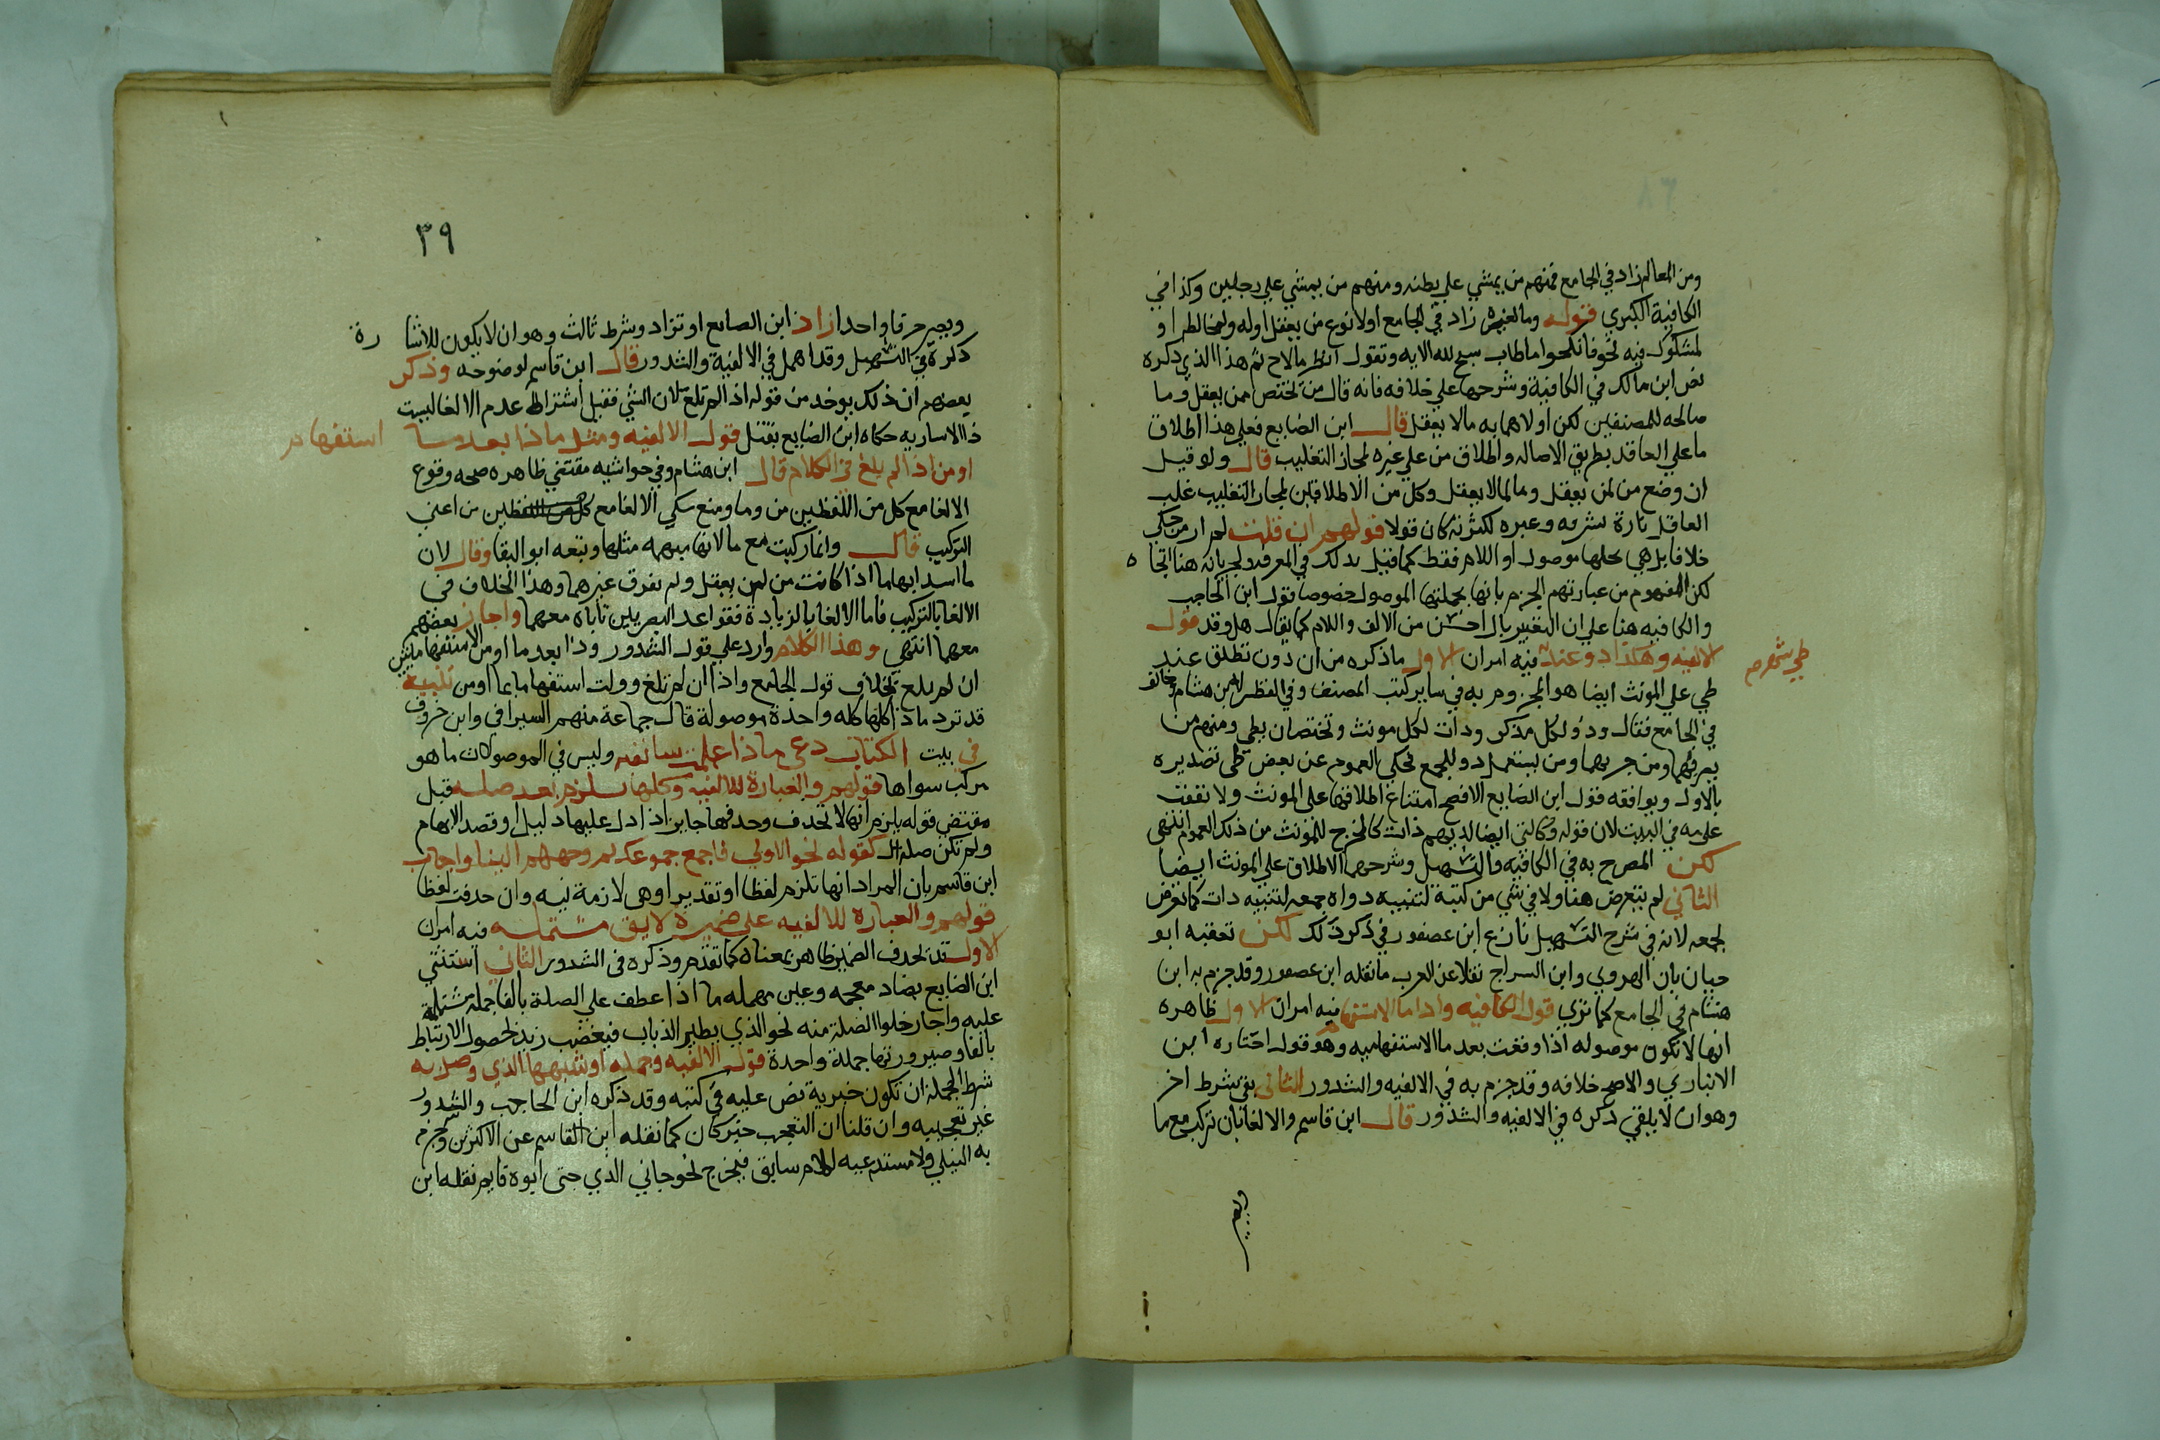 ومن المعالم زاد في الجامع فمنهم من يمشي علي بطنه ومنهم من يمشي علي رجلين وكذا في
الكافية الكبري قوله وما لغيره زاد في الجامع اولا نوع من يعقل اوله ولمخالطه او
لمشكوك فيه نحو فانكحوا ما طاب سبح لله الايه وتقول انظر ما لاح ثم هذا الذي ذكره
نص ابن مالك في الكافية وشرحها علي خلافه فانه قال من تختص بمن يعقل وما
صالحه للصنفين لكن اولاهما به مالا يعقل قال ابن الضايع فعلي هذا اطلاق
ما علي العاقل بطريق الاصاله واطلاق من علي غيره لمجاز التغليب قال ولو قيل
ان وضع من لمن يعقل وما لما لا يعقل وكل من الاطلاقين لمجاز التغليب غلب
العاقل تارة لشرفه وغيره لكثرته كان قولا قولهم ان قلت لم ار من حكي
خلافا بل هي بجملها موصول او اللام فقط كما قيل بذلك في المعرفه ولي بانه هنا اتجاه
لكن المفهوم من عبارتهم الجزم بانها بجملتها الموصول خصوصا قول ابن الحاجب
والكافيه هنا علي ان التعبير بال احسن من الالف واللام كما يقال هل وقد قول
الالفيه وهكذا ذو عند فيه امران الاول ما ذكره من ان ذو ن تطلق عند
طي شهرم
طي علي المونث ايضا هو المجزوم به في ساير كتب المصنف وفي القطر لابن هشام وخالف
في الجامع فقال وذو لكل مذكر وذات لكل مونث وتختصان بطي ومنهم من
يعرفهما ومن جربهما ومن يستعمل ذو للجمع فحكي العموم عن بعض طي تصديره
بالاول ويوافقه قول ابن الضايع الافصح امتناع اطلاقها علي المونث ولا نقف
عليه في البيت لان قوله وكالتي ايضا لديهم ذات كالمخرج للمونث من ذلك العموم انتهي
لكن المصرح به في الكافيه والتسهيل وشرحهما الاطلاق علي المونث ايضا
الثاني لم يتعرض هنا ولا في شي من كتبه لتثنيه ذو اه جمعه لتثنيه ذات كما تعرض
لجمعه لانه في شرح التسهيل نازع ابن عصفور في ذكر ذلك لكن تعقبه ابو
حيان بان الهروي وابن السراج نقلا عن العرب ما نقله ابن عصفور وقد جزم به ابن
هشام في الجامع كما تري قول الكافيه واذا ما الاستفهام فيه امران الاول ظاهره
انها لا تكون موصوله اذا وقعت بعد ما الاستفهاميه وهو قول اختاره ابن
الانباري والاصح خلافه وقد جزم به في الالفيه والشدور الثاني بقي شرط اخر
وهو ان لا يلغي ذكره في الالفيه والشذور قال ابن قاسم والالغا بان تركب مع ما
ويصير
٣٩
ويصير حرفا واحدا زاد ابن الصايع او تزاد وشرط ثالث وهو ان لا يكون للاشارة
ذكره في التسهيل وقد اهمل في الالفية والشدور قال ابن قاسم لوضوحه وذكر
بعضهم ان ذلك يوخذ من قوله اذا لم تلغ لان الشي فقبل اشتراط عدم الالغا ليست
ذا الاساريه حكاه ابن الضايع بفتل قول الالفيه ومثل ماذا بعد ما استفهام
او من اذا لم يلغ في الكلام قال ابن هشام وفي حواشيه مقتضي ظاهره صحه وقوع
الالغا مع كل من اللفظين من وما ومنع سكي الالغا مع من اعني
التركيب قال وانما ركبت مع ما لانها مبهمه مثلها وتبعه ابو البقا وقال لان
ما اشد ابهاما اذا كانت من لمن يعقل ولم يفرق غيرهما وهذا الخلاف في
الالغا بالتركيب فاما الالغا بالزيادة فقواعد البصريين تاباه معهما واجاز بعضهم
معهما انتهي وهذا الكلام وارد علي قول الشذور وذا بعد ما او من الاستفهاميتين
ان لم تلغ بخلاف قول الجامع واذا ان لم تلغ وولت استفهاما بما او من تنبيه
قد ترد ماذا كلها كله واحدة موصولة قال جماعة منهم السيرافي وابن خروف
في بيت الكتاب دعي ماذا علمت ساتقه وليس في الموصولات ما هو
مركب سواها قولهم والعبارة للالفيه وكلها يلزم بعد صله قيل
مقتضي قوله يلزم انها لا تحذف وحذفها جايز اذا دل عليها دليل او قصد الابهام
ولم تكن صله ال كقوله نحو الاولي فاجمع جموعك ثم وجههم الينا واجاب
ابن قاسم بان المراد انها تلزم لفظا او تقديرا وهي لازمة نيه وان حذفت لفظا
قولهم والعبارة للالفيه علي ضمير لايق مشتمله فيه امران
الاول قد تحذف الضمير ظاهر بمعناه كما تقدم وذكره في الشدور الثاني استثني
ابن الضايع بضاد معجمه وعين مهمله ما اذا عطف علي الصلة بالفا جمله مشتملة
عليه واجاز خلو الصلة منه نحو الذي يطير الذباب فيغضب زيد لحصول الارتباط
بالفا وصيرورتها جملة واحدة قول الالفيه وجمله او شبهها الذي وصل به
شرط الجمله ان تكون خبرية نص عليه في كتبه وقد ذكره ابن الحاجب والشدور
غير تعجبيه وان قلنا ان التعجب خبر كان كما نقله ابن القاسم عن الاكثرين وجزم
به النيلي ولا مستدعيه لكلام سابق فيخرج نحو جاني الذي حتي ابوه قايم نقله ابن